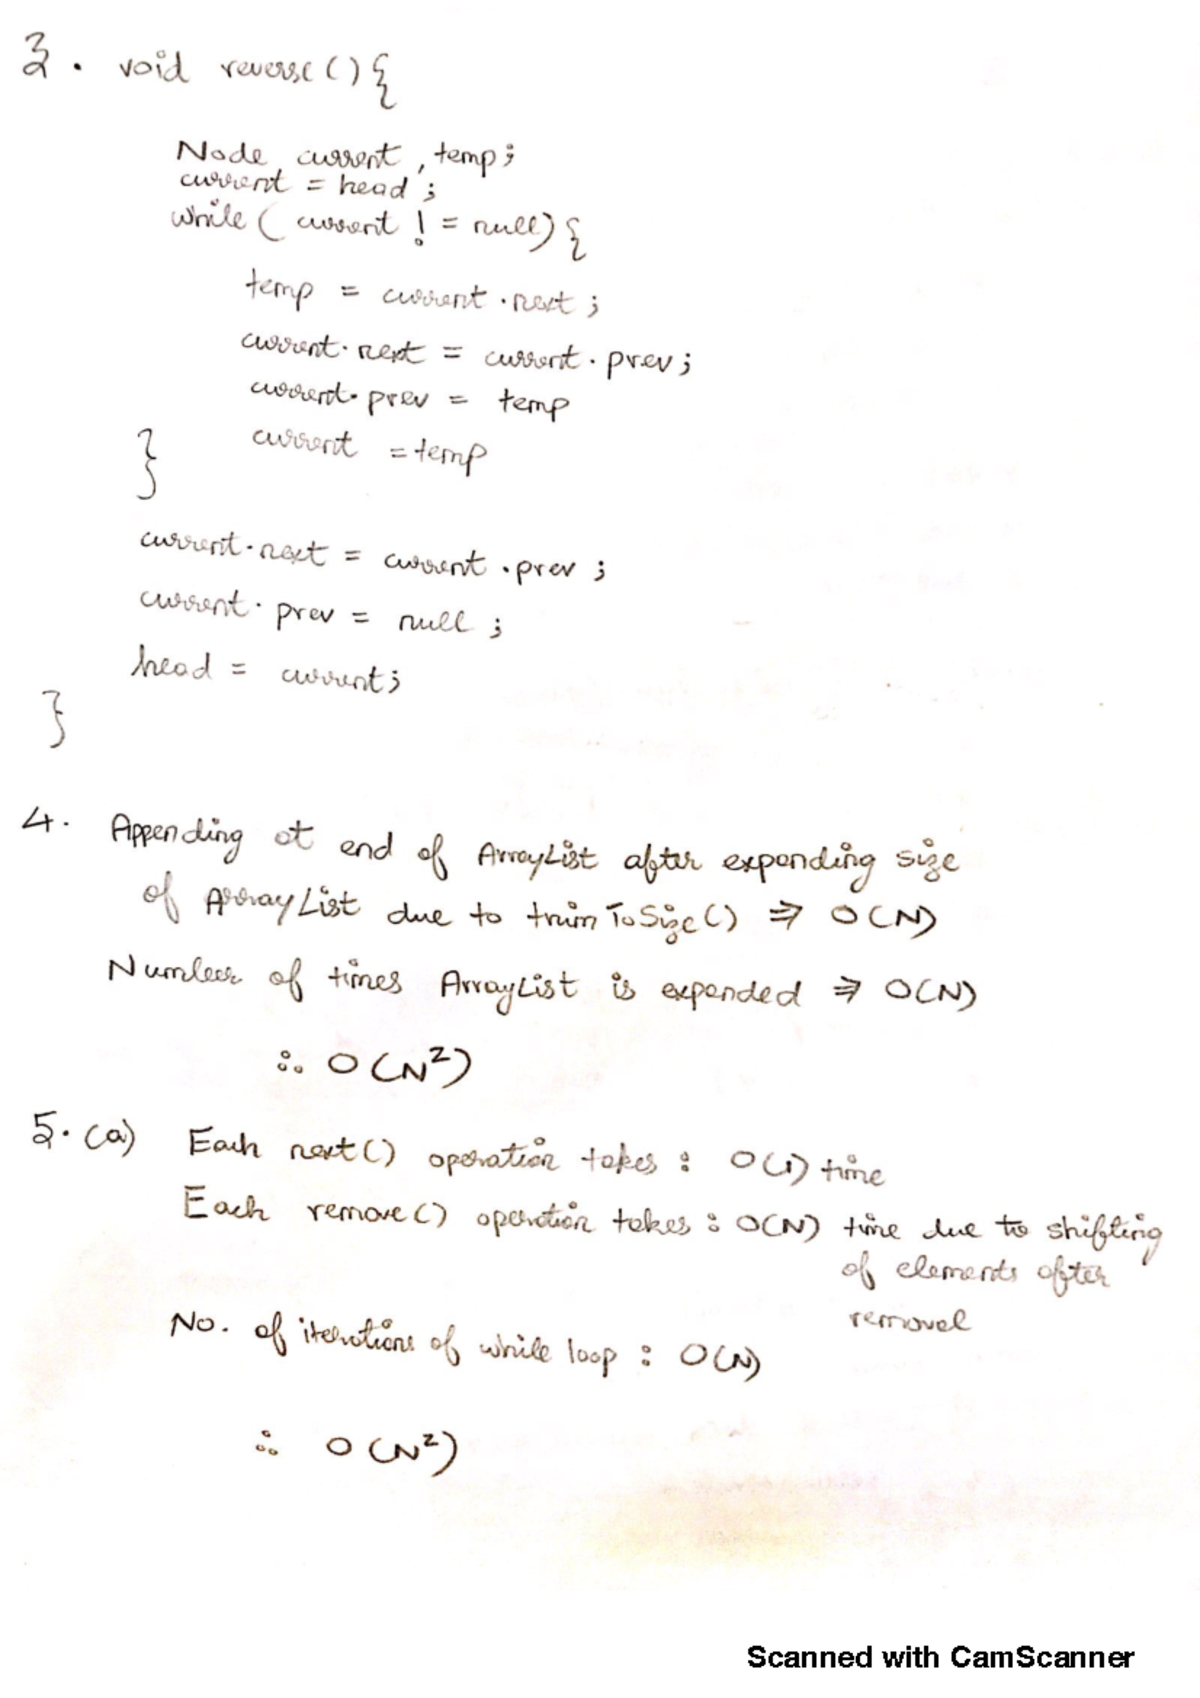 3. void reverse() {
Node current, temp;
current = head;
while (current != null) {
temp = current.next;
current.next = current.prev;
current.prev = temp
current = temp
}
current.next = current.prev;
current.prev = null;
head = current;
}
4. Appending at end of ArrayList after expanding size
of ArrayList due to trimToSize() ⇒ O(N)
Number of times ArrayList is expanded ⇒ O(N)
∴ O(N²)
5. (a) Each next() operation takes : O(1) time
Each remove() operation takes : O(N) time due to shifting
of elements after
removal
No. of iterations of while loop : O(N)
∴ O(N²)
Scanned with CamScanner